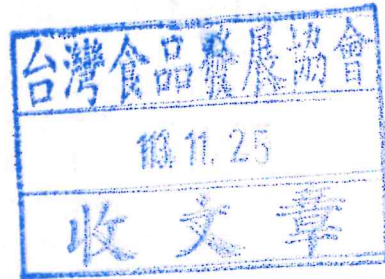 台灣食品發展協會
113.11.25
收文章